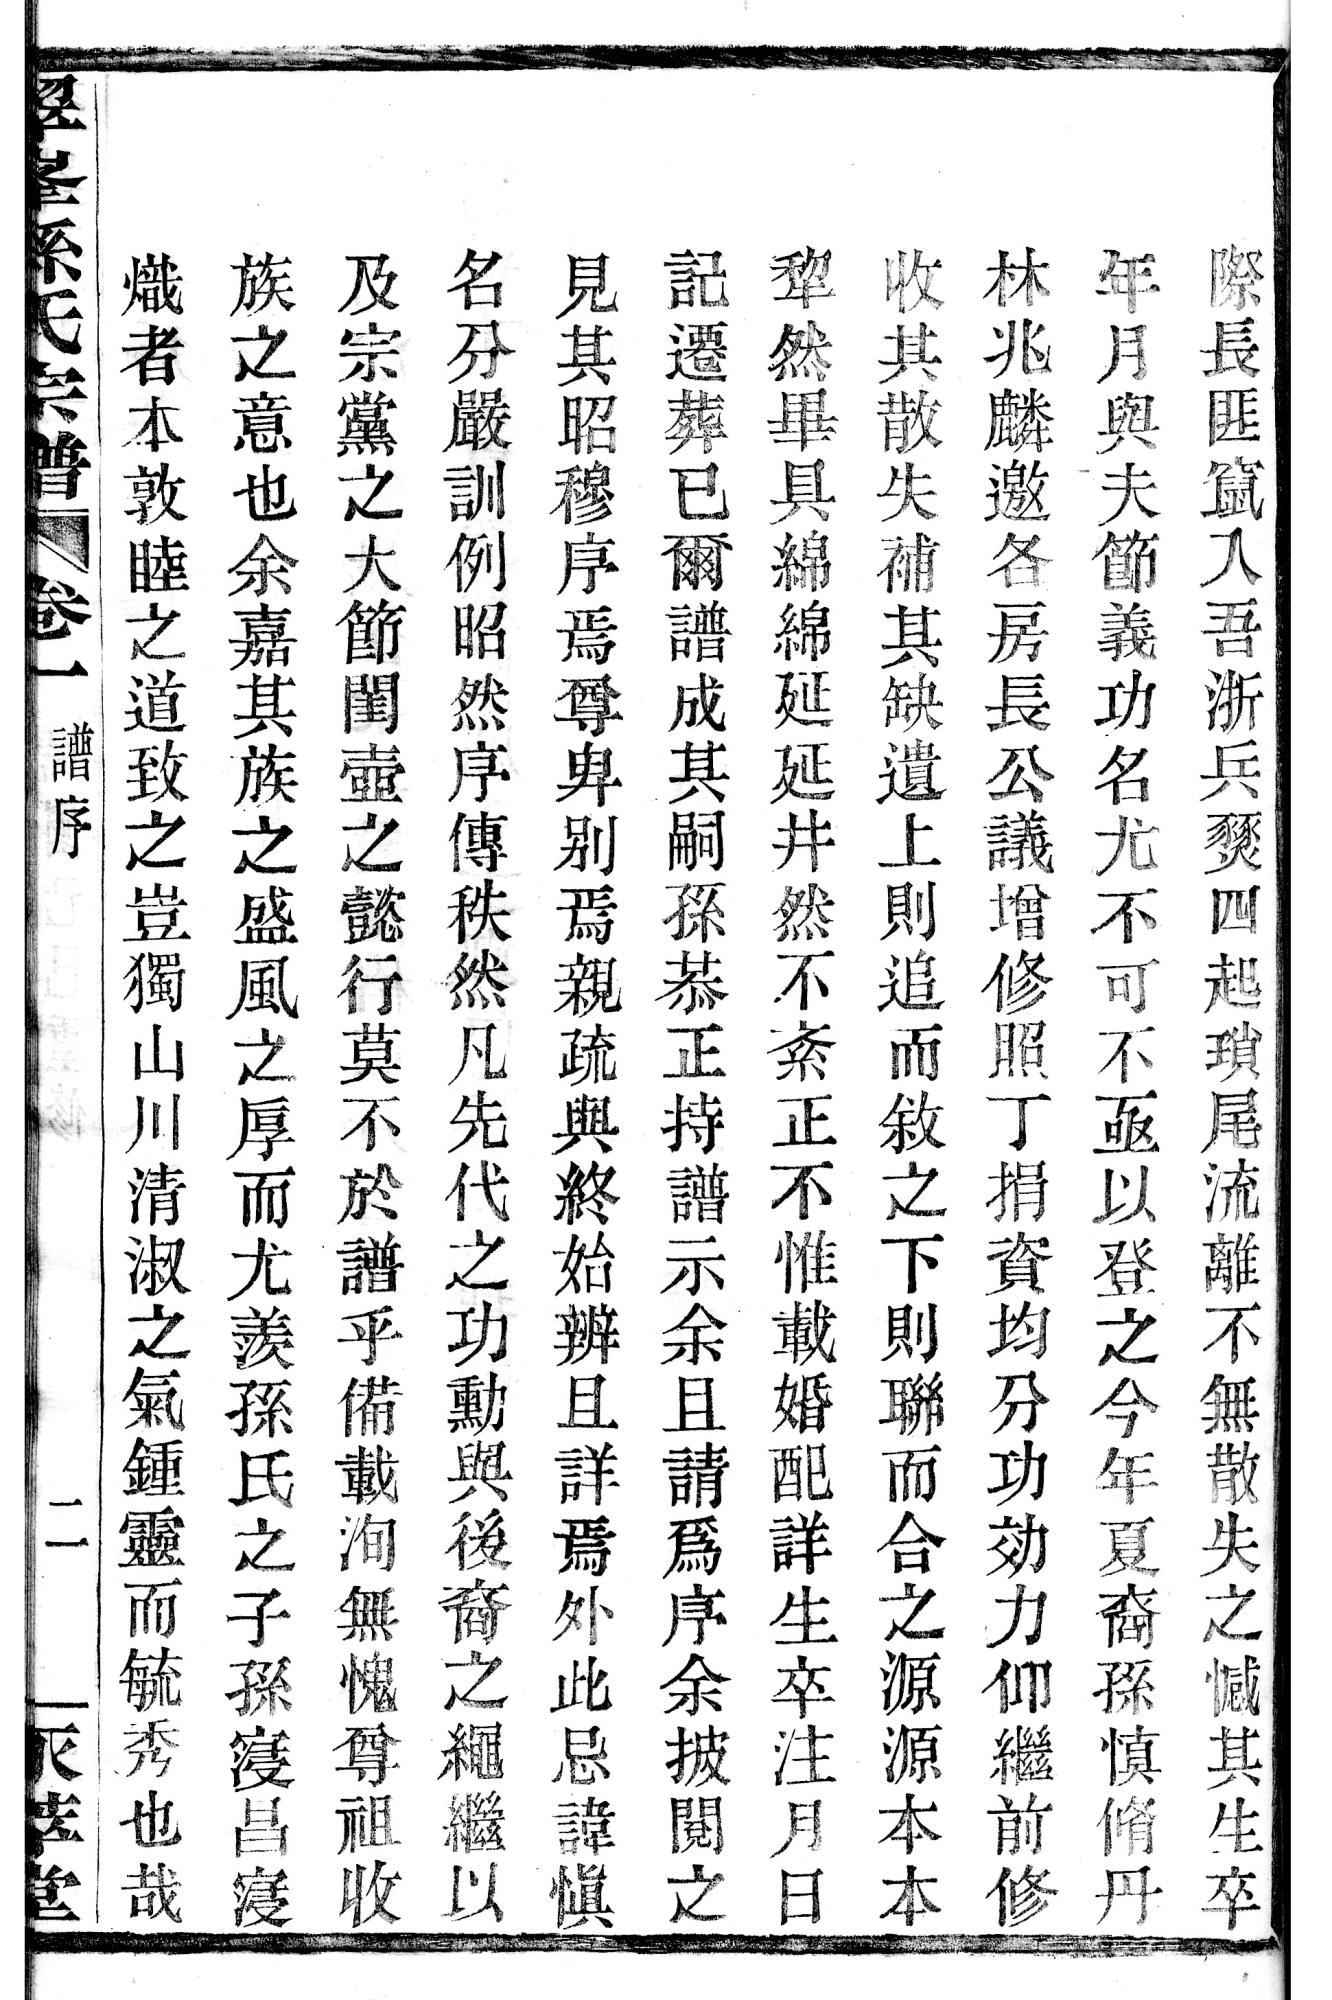 際長匪竄入吾浙兵燹四起瑣尾流離不無散失之憾其生卒
年月與夫節義功名尤不可不亟以登之今年夏裔孫慎脩丹
林兆麟邀各房長公議增修照丁捐資均分功効力仰繼前修
收其散失補其缺遺上則追而敘之下則聯而合之源源本本
犂然畢具綿綿延延井然不紊正不惟載婚配詳生卒注月日
記遷葬已爾譜成其嗣孫恭正持譜示余且請爲序余披閱之
見其昭穆序焉尊卑别焉親疏與終始辨且詳焉外此忌諱愼
名分嚴訓例昭然序傳秩然凡先代之功勳與後裔之繩繼以
及宗黨之大節閨壼之懿行莫不於譜乎備載洵無愧尊祖收
族之意也余嘉其族之盛風之厚而尤羨孫氏之子孫寖昌寖
熾者本敦睦之道致之豈獨山川清淑之氣鍾靈而毓秀也哉
翠峯孫氏宗譜 卷一 譜序 二 萃堂